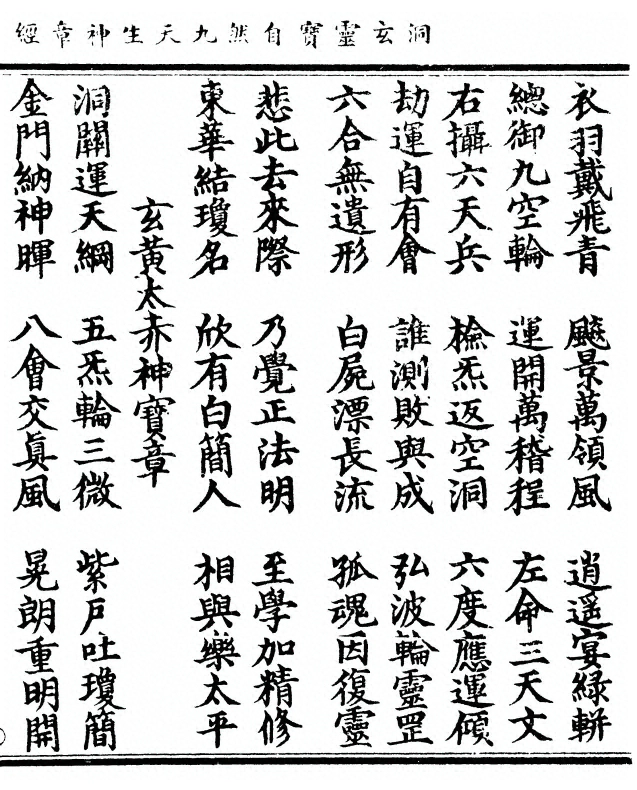 洞玄靈寶自然九天生神章經
衣羽戴飛青　飈景萬領風　逍遥宴綠軿
總御九空輪　運開萬稽程　左命三天文
右攝六天兵　檢炁返空洞　六度應運傾
劫運自有會　誰測敗與成　弘波輪靈罡
六合無遺形　白屍漂長流　孤魂因復靈
悲此去來際　乃覺正法明　至學加精修
東華結瓊名　欣有白簡人　相與樂太平
玄黃太赤神寶章
洞關運天綱　五炁輪三微　紫戶吐瓊簡
金門納神暉　八會交眞風　晃朗重明開